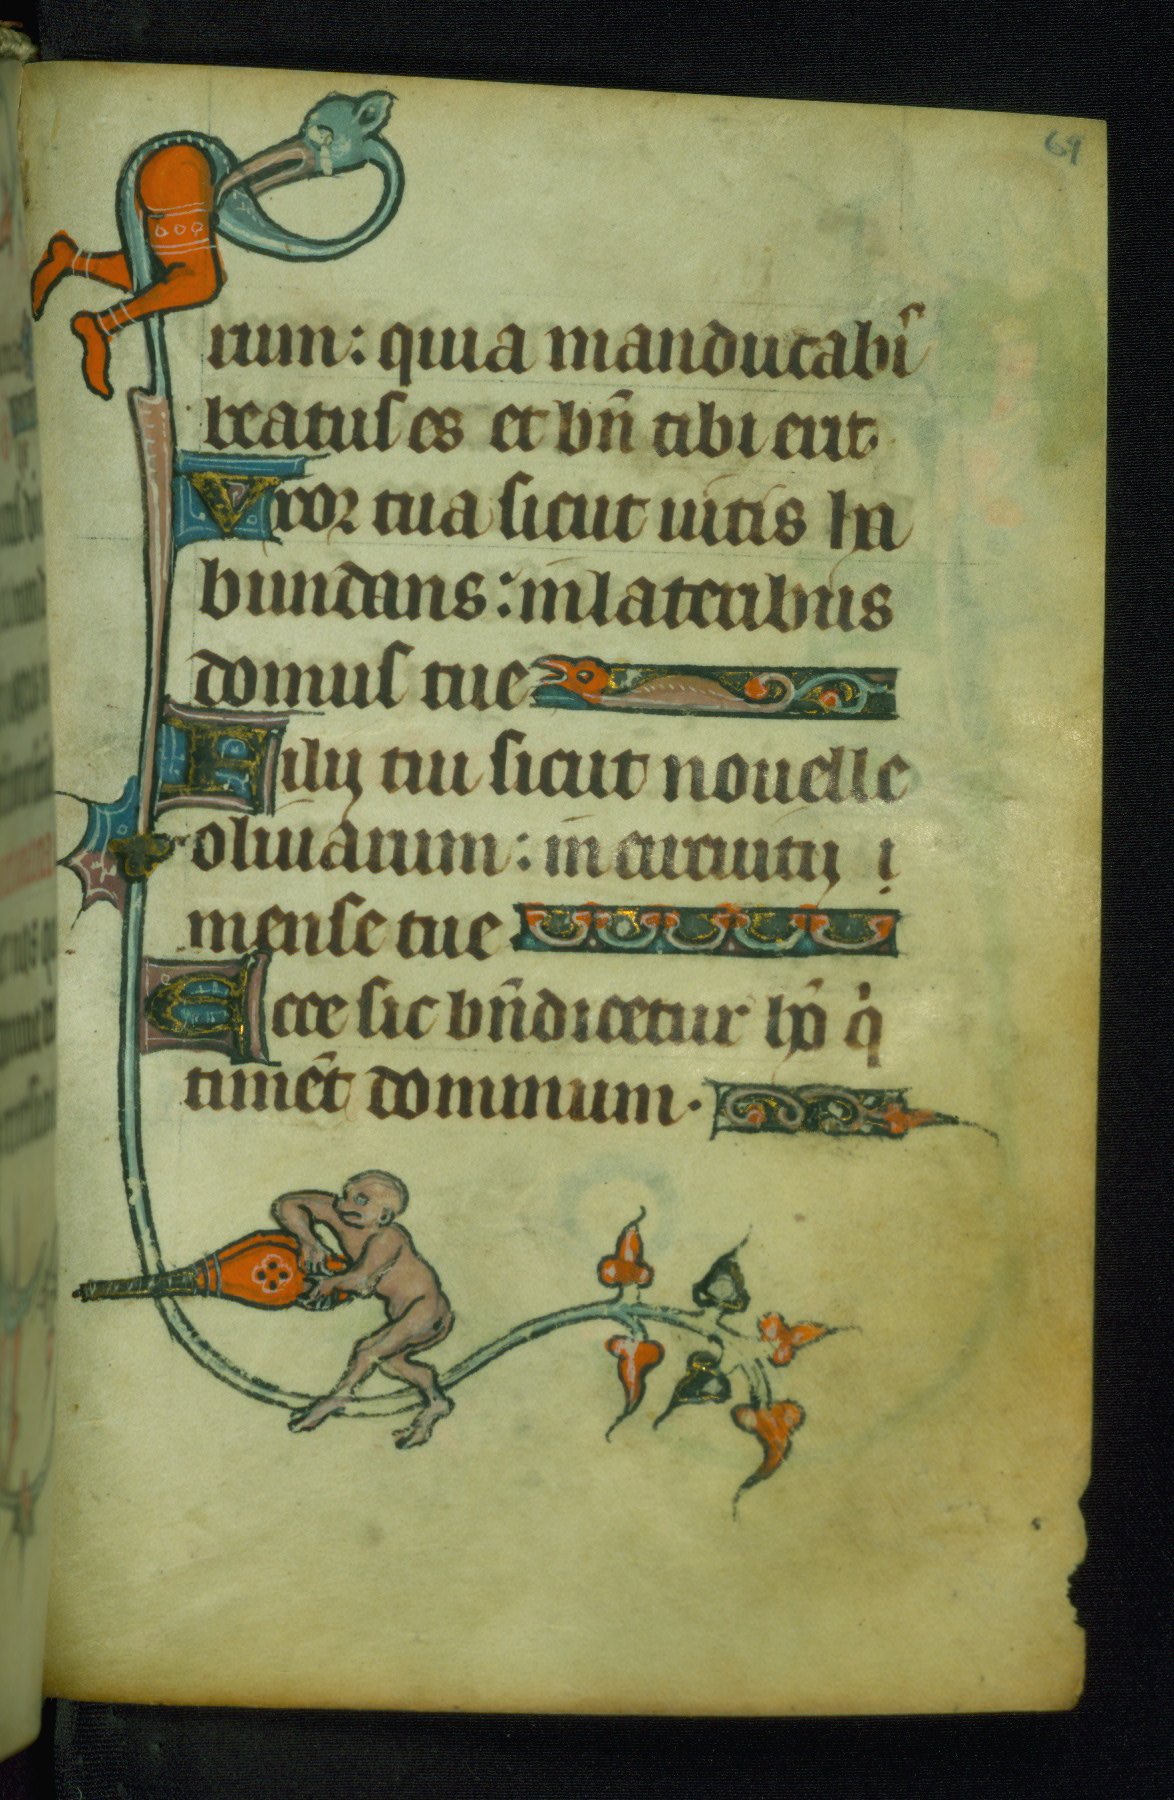 69
rum: quia manducabis
beatus es et bn̄ tibi erit.
Vxor tua sicut uitis ha
bundans: in lateribus
domus tue
Filij tui sicut nouelle
oliuarum: in circuitu i
mense tue
Ecce sic bn̄dicetur hō qi
timēt dominum.